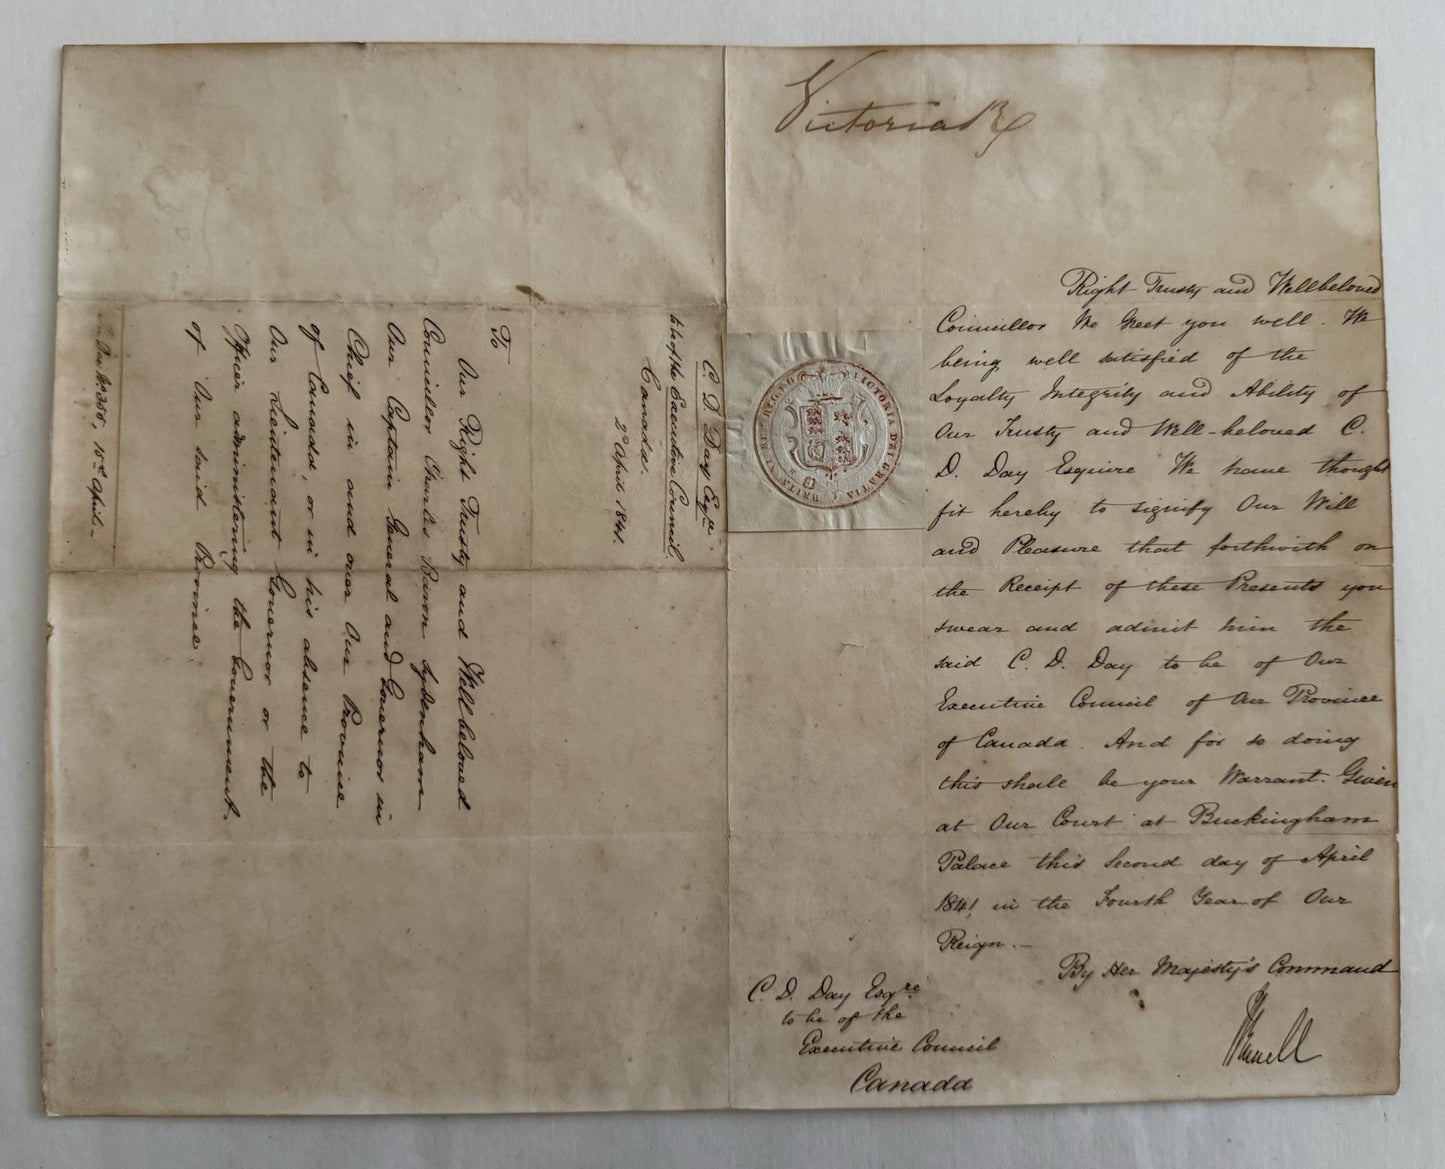 Victoria R
Right Trusty and Wellbeloved
Councillor We Greet you well. We
being well satisfied of the
Loyalty Integrity and Ability of
Our Trusty and Well-beloved C.
D. Day Esquire We have thought
fit hereby to signify Our Will
and Pleasure that forthwith on
the Receipt of these Presents you
swear and admit him the
said C. D. Day to be of Our
Executive Council of Our Province
of Canada. And for so doing
this shall be your Warrant. Given
at Our Court at Buckingham
Palace this Second day of April
1841 in the Fourth Year of Our
Reign.—
By Her Majesty's Command
C. D. Day Esqre
to be of the
Executive Council
Canada
VICTORIA DEI GRATIA BRITANNIAR REGINA F D
C. D. Day Esqre.
to be of the Executive Council,
Canada.
2d April 1841.
To
Our Right Trusty and Well beloved
Councillor Charles Baron Sydenham
Our Captain General and Governor in
Chief in and over Our Province
of Canada, or in his absence to
Our Lieutenant Governor or the
Officer administering the Government
of Our said Province.
April.—